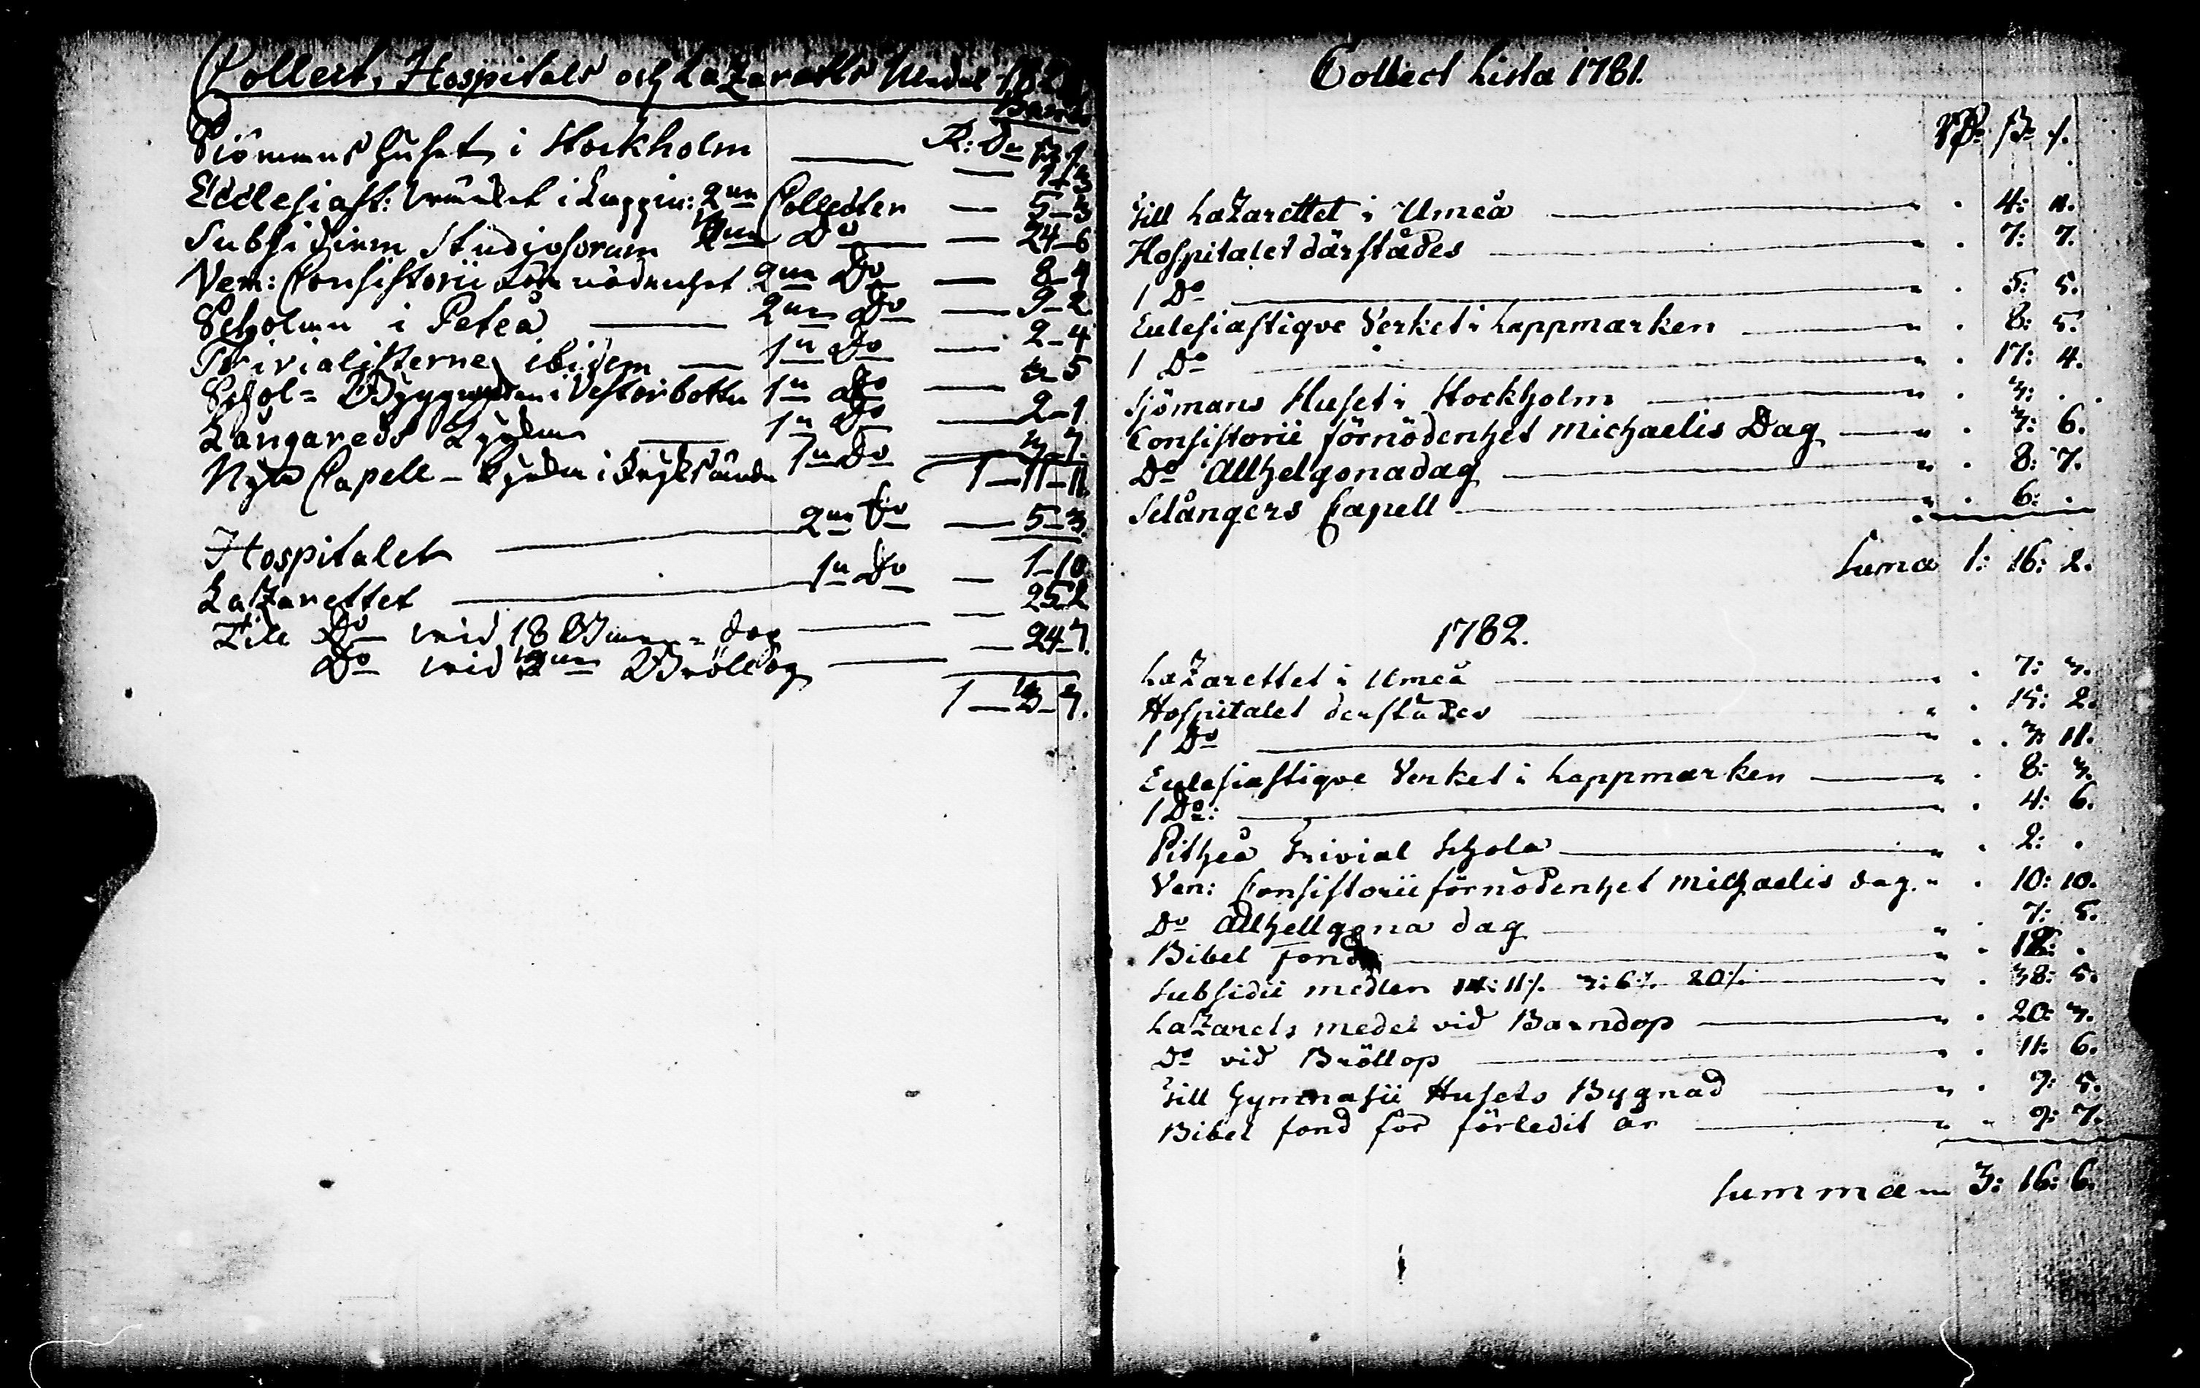 Collect, Hospitals och Lazaretts Medel
Siömans huset i Stockholm — R: Dr ß /
Ecclesiast: wärcket i Lappm: 2ne Collecter — 5–3
Subsidium Studiosorum Do — 24–6
Ven: Consistorii förnödenhet 2ne Do — 8–9
Scholan i Piteå — 2ne Do — 9–2
Trivialisterne ibidem — 1n Do — 2–4
Schol= Byggnaden i Vesterbotten 1n Do — 5
Långareds Kyrka — 1n Do — 2–1
Nya Capell – 1n Do
1–11–11
Hospitalet — 2ne Do — 5–3
Lazarettet — 1n Do — 1–10
Till Do wid 18 Barn= dop — 25–2
Do wid Bröllop — 24–7
1 — 7.
Collect Lista 1781.
Rd: ß: /.
Till Lazarettet i Umeå — 4: 11.
Hospitalet därstädes — 7: 7.
1 Do — 5: 5.
Eclesiastiqve Verket i Lappmarken — 8: 5.
1 Do — 17: 4.
Sjömans Huset i Stockholm — 3: .
Consistorii förnödenhet Michaelis Dag — 3: 6.
Do Allhelgonadag — 8: 7.
Selångers Capell — 6: .
Suma 1: 16: 2.
1782.
Lazarettet i Umeå — 7: 3.
Hospitalet derstädes — 15: 2.
1 Do — 3: 11.
Eclesiastiqve Verket i Lappmarken — 8: 3.
1 Do: — 4: 6.
Pitheå Trivial Schola — 2: .
Ven: Consistorii förnödenhet Michaelis dag. 10: 10.
Do Allhellgona dag — 7: 5.
Bibel fond — 18: .
Subsidii medlen 14: 11/. 3: 6/. 20/. — 38: 5.
Lazarets medel vid Barndop — 20: 3.
Do vid Bröllop — 11: 6.
Till Gymnasii Husets Bygnad — 9: 5.
Bibel fond för förledit år — 9: 7.
Summa 3: 16: 6.